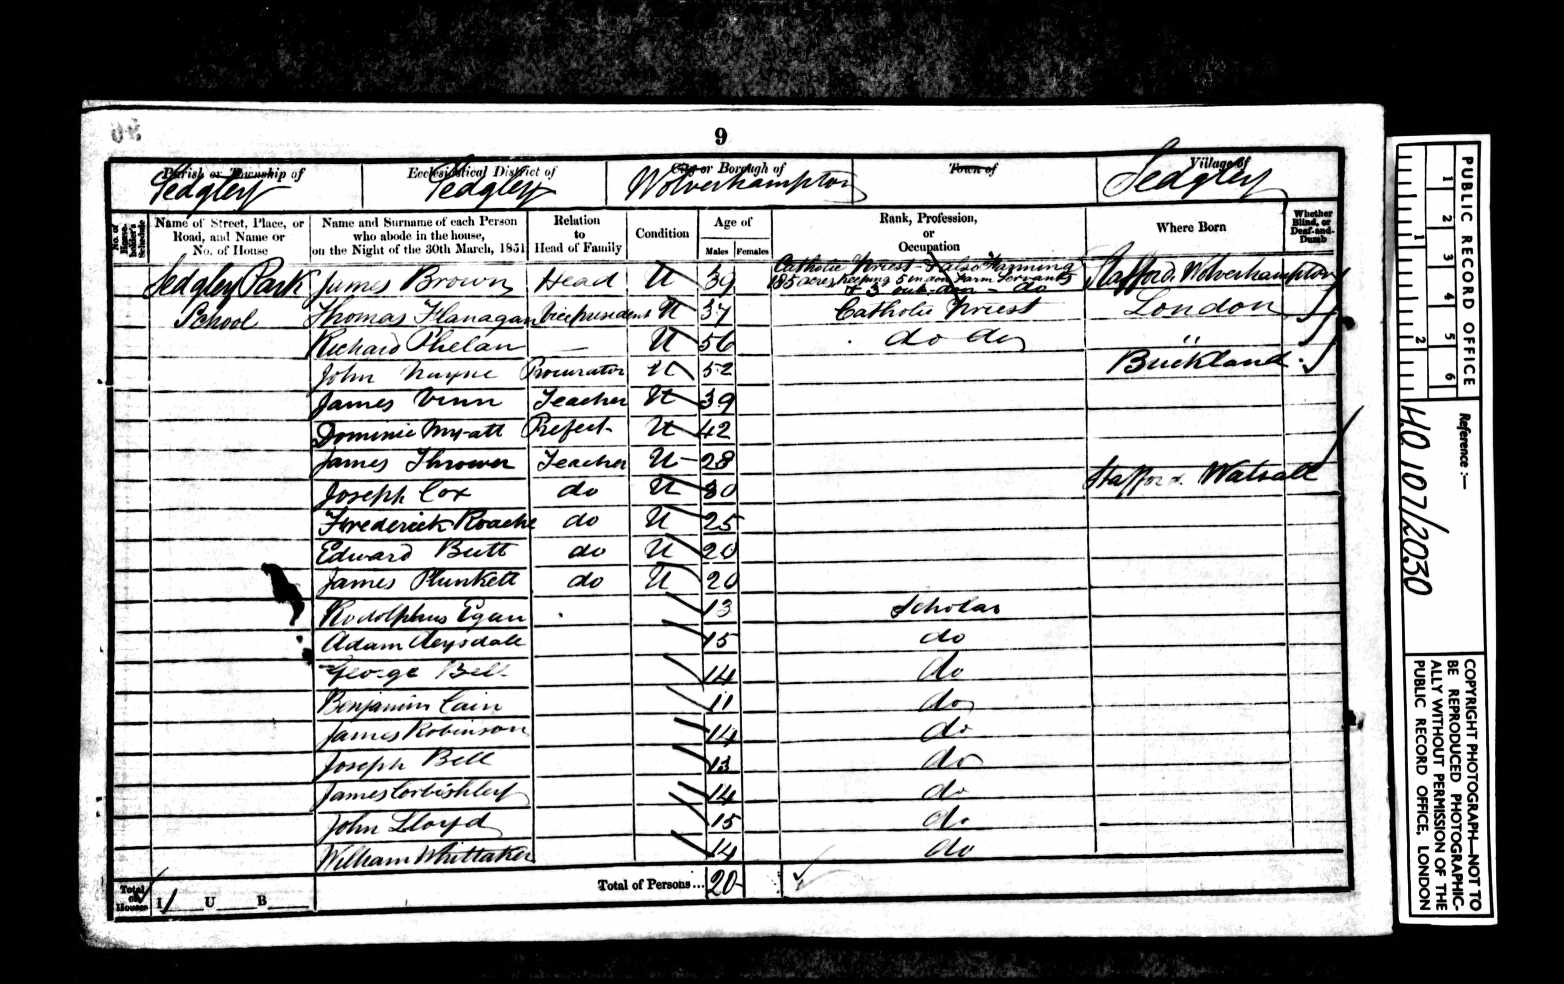 9
Parish or Township of Ecclesiastical District of City or Borough of Town of Village of
Sedgley Sedgley Wolverhampton Sedgley
No. of House-holder's Schedule
Name of Street, Place, or Road, and Name or No. of House
Name and Surname of each Person who abode in the house, on the Night of the 30th March, 1851
Relation to Head of Family
Condition
Age of Males Females
Rank, Profession, or Occupation
Where Born
Whether Blind, or Deaf-and-Dumb
Sedgley Park James Brown Head U 39 Catholic Priest - & also Farming 185 acres keeping 5 indoor Farm Servants & 3 out-door - do Stafford. Wolverhampton
School Thomas Flanagan Vice president U 37 Catholic Priest London
Richard Phelan — U 56 do do "
John U 52 Procurator Buckland
James Venn Teacher U 39
Dominic Myatt Prefect U 42
James Thrower Teacher U 28
Joseph Cox do U 30 Stafford. Walsall
Frederick Roache do U 25
Edward Butt do U 20
James Plunkett do U 20
Rodolphus Egan 13 Scholar
Adam 15 do
George Bell 14 do
Benjamin Cain 11 do
James Robinson 14 do
Joseph Bell 13 do
James Corbishley 14 do
John Lloyd 15 do
William Whittaker 14 do
Total of Houses I 1 U B Total of Persons... 20
PUBLIC RECORD OFFICE
1 2 3 4 5 6
1 2
Reference :—
HO 107/2030
COPYRIGHT PHOTOGRAPH—NOT TO
BE REPRODUCED PHOTOGRAPHIC-
ALLY WITHOUT PERMISSION OF THE
PUBLIC RECORD OFFICE, LONDON